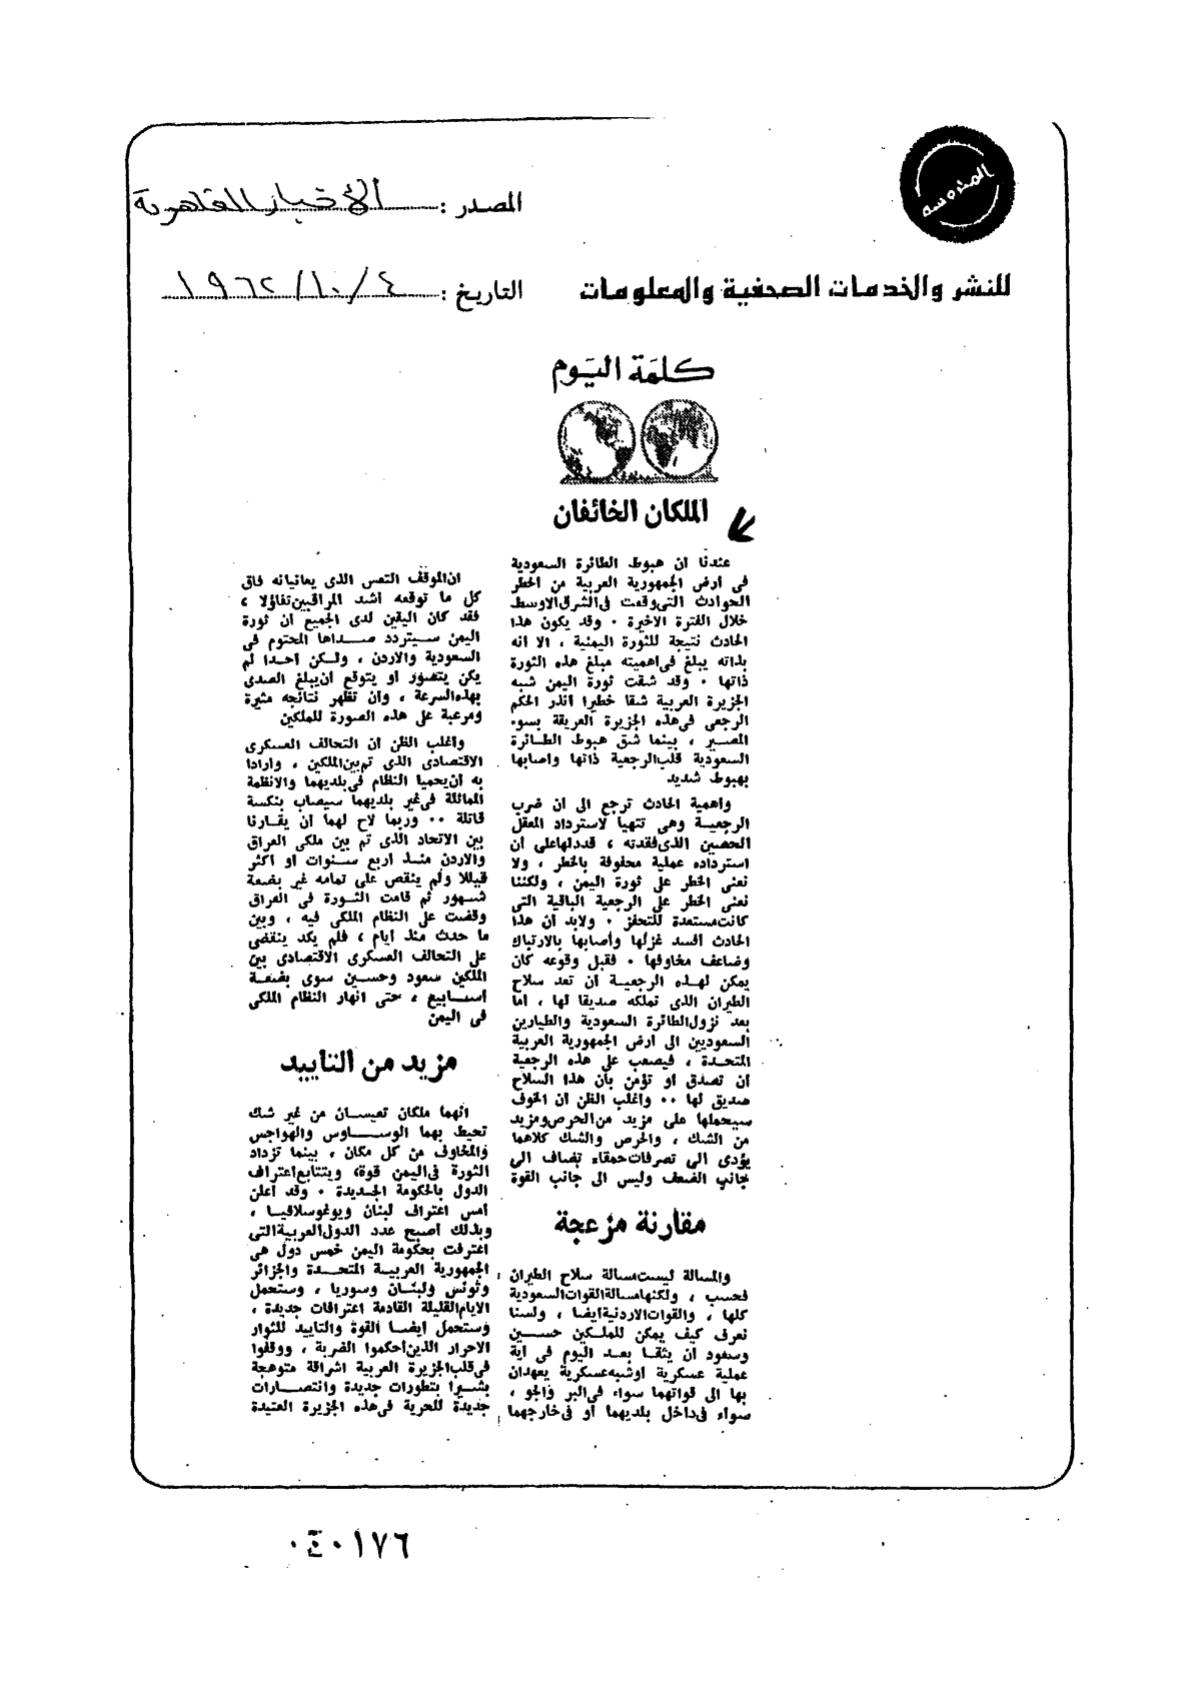 المحروسة
المصدر : الأخبار القاهرية
للنشر والخدمات الصحفية والمعلومات
التاريخ : ١٩٦٢/١٠/٤
كلمة اليوم
الملكان الخائفان
عندنا ان هبوط الطائرة السعودية
فى ارض الجمهورية العربية من اخطر
الحوادث التى وقعت فى الشرق الاوسط
خلال الفترة الاخيرة ٠ وقد يكون هذا
الحادث نتيجة للثورة اليمنية ، الا انه
بذاته يبلغ فى اهميته مبلغ هذه الثورة
ذاتها ٠ وقد شقت ثورة اليمن شبه
الجزيرة العربية شقا خطيرا انذر الحكم
الرجعى فى هذه الجزيرة العريقة بسوء
المصير ، بينما شق هبوط الطائرة
السعودية قلب الرجعية ذاتها واصابها
بهبوط شديد
واهمية الحادث ترجع الى ان ضرب
الرجعية وهى تتهيا لاسترداد المعقل
الحصين الذى فقدته ، قد دلها على ان
استرداده عملية محفوفة بالخطر ، ولا
نعنى الخطر على ثورة اليمن ، ولكننا
نعنى الخطر على الرجعية الباقية التى
كانت مستعدة للتحفز ٠ ولابد ان هذا
الحادث افسد غزلها وأصابها بالارتباك
وضاعف مخاوفها ٠ فقبل وقوعه كان
يمكن لهذه الرجعية ان تعد سلاح
الطيران الذى تملكه صديقا لها ، اما
بعد نزول الطائرة السعودية والطيارين
السعوديين الى ارض الجمهورية العربية
المتحدة ، فيصعب على هذه الرجعية
ان تصدق او تؤمن بأن هذا السلاح
صديق لها ٠٠ واغلب الظن ان الخوف
سيحملها على مزيد من الحرص ومزيد
من الشك ، والحرص والشك كلاهما
يؤدى الى تصرفات حمقاء تضاف الى
جانب الضعف وليس الى جانب القوة
مقارنة مزعجة
والمسالة ليست مسالة سلاح الطيران
فحسب ، ولكنها مسالة القوات السعودية
كلها ، والقوات الاردنية ايضا ، ولسنا
نعرف كيف يمكن للملكين حسين
وسعود ان يثقا بعد اليوم فى اية
عملية عسكرية او شبه عسكرية يعهدان
بها الى قواتهما سواء فى البر والجو ،
سواء فى داخل بلديهما او فى خارجهما
ان الموقف التعس الذى يعانيانه فاق
كل ما توقعه اشد المراقبين تفاؤلا ،
فقد كان اليقين لدى الجميع ان ثورة
اليمن سيتردد صداها المحتوم فى
السعودية والاردن ، ولكن احدا لم
يكن يتصور او يتوقع ان يبلغ الصدى
بهذه السرعة ، وان تظهر نتائجه مثيرة
ومرعبة على هذه الصورة للملكين
واغلب الظن ان التحالف العسكرى
الاقتصادى الذى تم بين الملكين ، وارادا
به ان يحميا النظام فى بلديهما والانظمة
المماثلة فى غير بلديهما سيصاب بنكسة
قاتلة ٠٠ وربما لاح لهما ان يقارنا
بين الاتحاد الذى تم بين ملكى العراق
والاردن منذ اربع سنوات او اكثر
قيللا ولم ينقض على تمامه غير بضعة
شهور ثم قامت الثورة فى العراق
وقضت على النظام الملكى فيه ، وبين
ما حدث منذ ايام ، فلم يكد ينقضى
على التحالف العسكرى الاقتصادى بين
الملكين سعود وحسين سوى بضعة
اسابيع ، حتى انهار النظام الملكى
فى اليمن
مزيد من التاييد
انهما ملكان تعيسان من غير شك
تحيط بهما الوساوس والهواجس
والمخاوف من كل مكان ، بينما تزداد
الثورة فى اليمن قوة، ويتتابع اعتراف
الدول بالحكومة الجديدة ٠ وقد اعلن
امس اعتراف لبنان ويوغوسلافيا ،
وبذلك اصبح عدد الدول العربية التى
اعترفت بحكومة اليمن خمس دول هى
الجمهورية العربية المتحدة والجزائر
وتونس ولبنان وسوريا ، وستحمل
الايام القليلة القادمة اعترافات جديدة ،
وستحمل ايضا القوة والتاييد للثوار
الاحرار الذين احكموا الضربة ، ووقفوا
فى قلب الجزيرة العربية اشراقة متوهجة
بشيرا بتطورات جديدة وانتصارات
جديدة للحرية فى هذه الجزيرة العتيدة
٠٤٠١٧٦